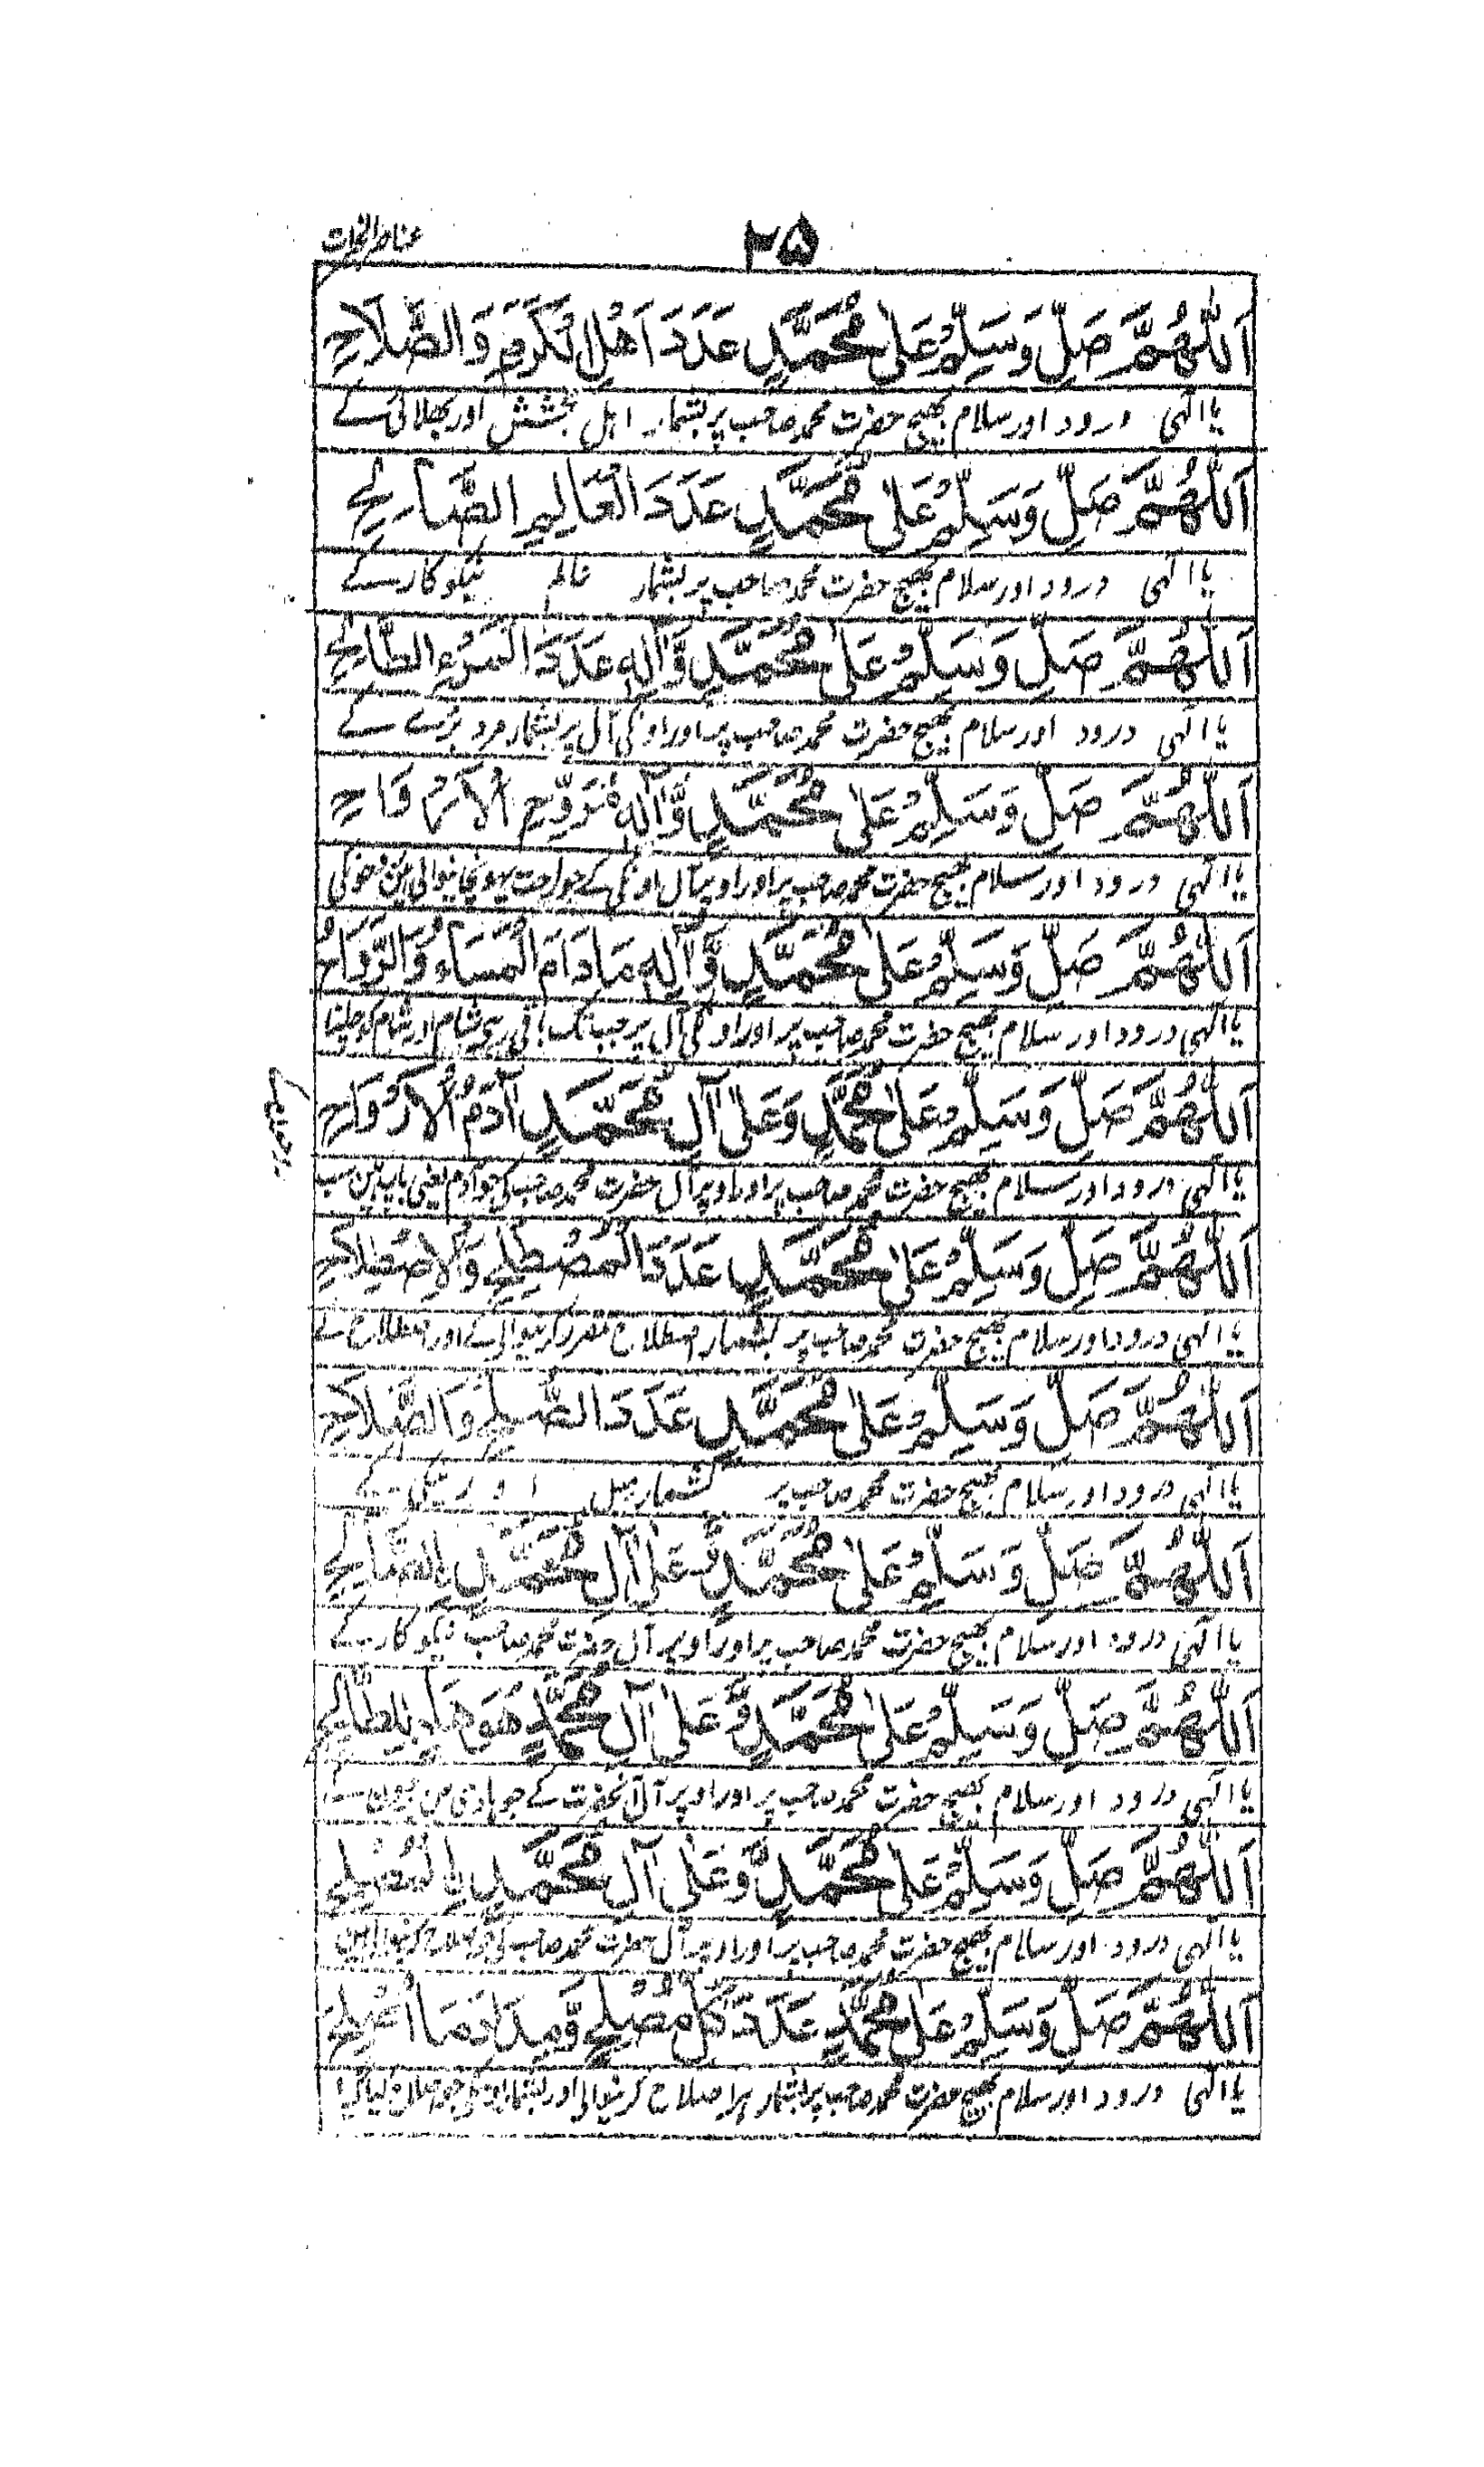 ۲۵
اَللّٰهُمَّ صَلِّ وَسَلِّمْ عَلٰى مُحَمَّدٍ عَدَدَ اَهْلِ الْكَرَمِ وَالصَّلَاحِ
یا الٰہی درود اور سلام بھیج حضرت محمد صاحب پر بشمار اہل بخشش اور بھلائی کے
اَللّٰهُمَّ صَلِّ وَسَلِّمْ عَلٰى مُحَمَّدٍ عَدَدَ الْعَالِمِ الصَّالِحِ
یا الٰہی درود اور سلام بھیج حضرت محمد صاحب پر بشمار عالم نیکوکار کے
اَللّٰهُمَّ صَلِّ وَسَلِّمْ عَلٰى مُحَمَّدٍ وَّاٰلِهٖ عَدَدَ الْمَرْءِ الطَّالِحِ
یا الٰہی درود اور سلام بھیج حضرت محمد صاحب پر اور اونکی آل پر بشمار مرد برے کے
اَللّٰهُمَّ صَلِّ وَسَلِّمْ عَلٰى مُحَمَّدٍ وَّاٰلِهٖ
یا الٰہی درود اور سلام بھیج حضرت محمد صاحب پر اور اوپر آل اونکی کے جو راحت پہونچانیوالی ہین
اَللّٰهُمَّ صَلِّ وَسَلِّمْ عَلٰى مُحَمَّدٍ وَّاٰلِهٖ مَادَامَ الْمَسَاءُ وَالرَّوَاحُ
یا الٰہی درود اور سلام بھیج حضرت محمد صاحب پر اور اونکی آل پر جب تک باقی رہے شام اور شام کو چلنا
اَللّٰهُمَّ صَلِّ وَسَلِّمْ عَلٰى مُحَمَّدٍ وَعَلٰى اٰلِ مُحَمَّدٍ اٰدَمُ الْاَرْوَاحِ
یا الٰہی درود اور سلام بھیج حضرت محمد صاحب پر اور اوپر آل حضرت محمد صاحب کی جو آدم یعنی باپ ہین سب
اَللّٰهُمَّ صَلِّ وَسَلِّمْ عَلٰى مُحَمَّدٍ عَدَدَ الْمُصْطَلِحِ وَالْاِصْطِلَاحِ
یا الٰہی درود اور سلام بھیج حضرت محمد صاحب پر بشمار اصطلاح مقرر کرنیوالی کے اور اصطلاح کے
اَللّٰهُمَّ صَلِّ وَسَلِّمْ عَلٰى مُحَمَّدٍ عَدَدَ الصُّلْحِ وَالصَّلَاحِ
یا الٰہی درود اور سلام بھیج حضرت محمد صاحب پر بشمار میل اور نیکی کے
اَللّٰهُمَّ صَلِّ وَسَلِّمْ عَلٰى مُحَمَّدٍ وَّعَلٰى اٰلِ مُحَمَّدٍ الصَّالِحِ
یا الٰہی درود اور سلام بھیج حضرت محمد صاحب پر اور اوپر آل حضرت محمد صاحب نیکوکار کے
اَللّٰهُمَّ صَلِّ وَسَلِّمْ عَلٰى مُحَمَّدٍ وَّعَلٰى اٰلِ مُحَمَّدٍ هُوَ هَادٍ لِلطَّالِحِ
یا الٰہی درود اور سلام بھیج حضرت محمد صاحب پر اور اوپر آل آنحضرت کے جو ہادی ہین
اَللّٰهُمَّ صَلِّ وَسَلِّمْ عَلٰى مُحَمَّدٍ وَّعَلٰى اٰلِ مُحَمَّدٍ الْمُصْلِحِ
یا الٰہی درود اور سلام بھیج حضرت محمد صاحب پر اور اوپر آل حضرت محمد صاحب کی جو اصلاح کرنیوالے ہین
اَللّٰهُمَّ صَلِّ وَسَلِّمْ عَلٰى مُحَمَّدٍ عَدَدَ كُلِّ مُصْلِحٍ وَّعَدَدَ مَا اُصْلِحَ
یا الٰہی درود اور سلام بھیج حضرت محمد صاحب پر بشمار ہر اصلاح کرنیوالی اور بشمار